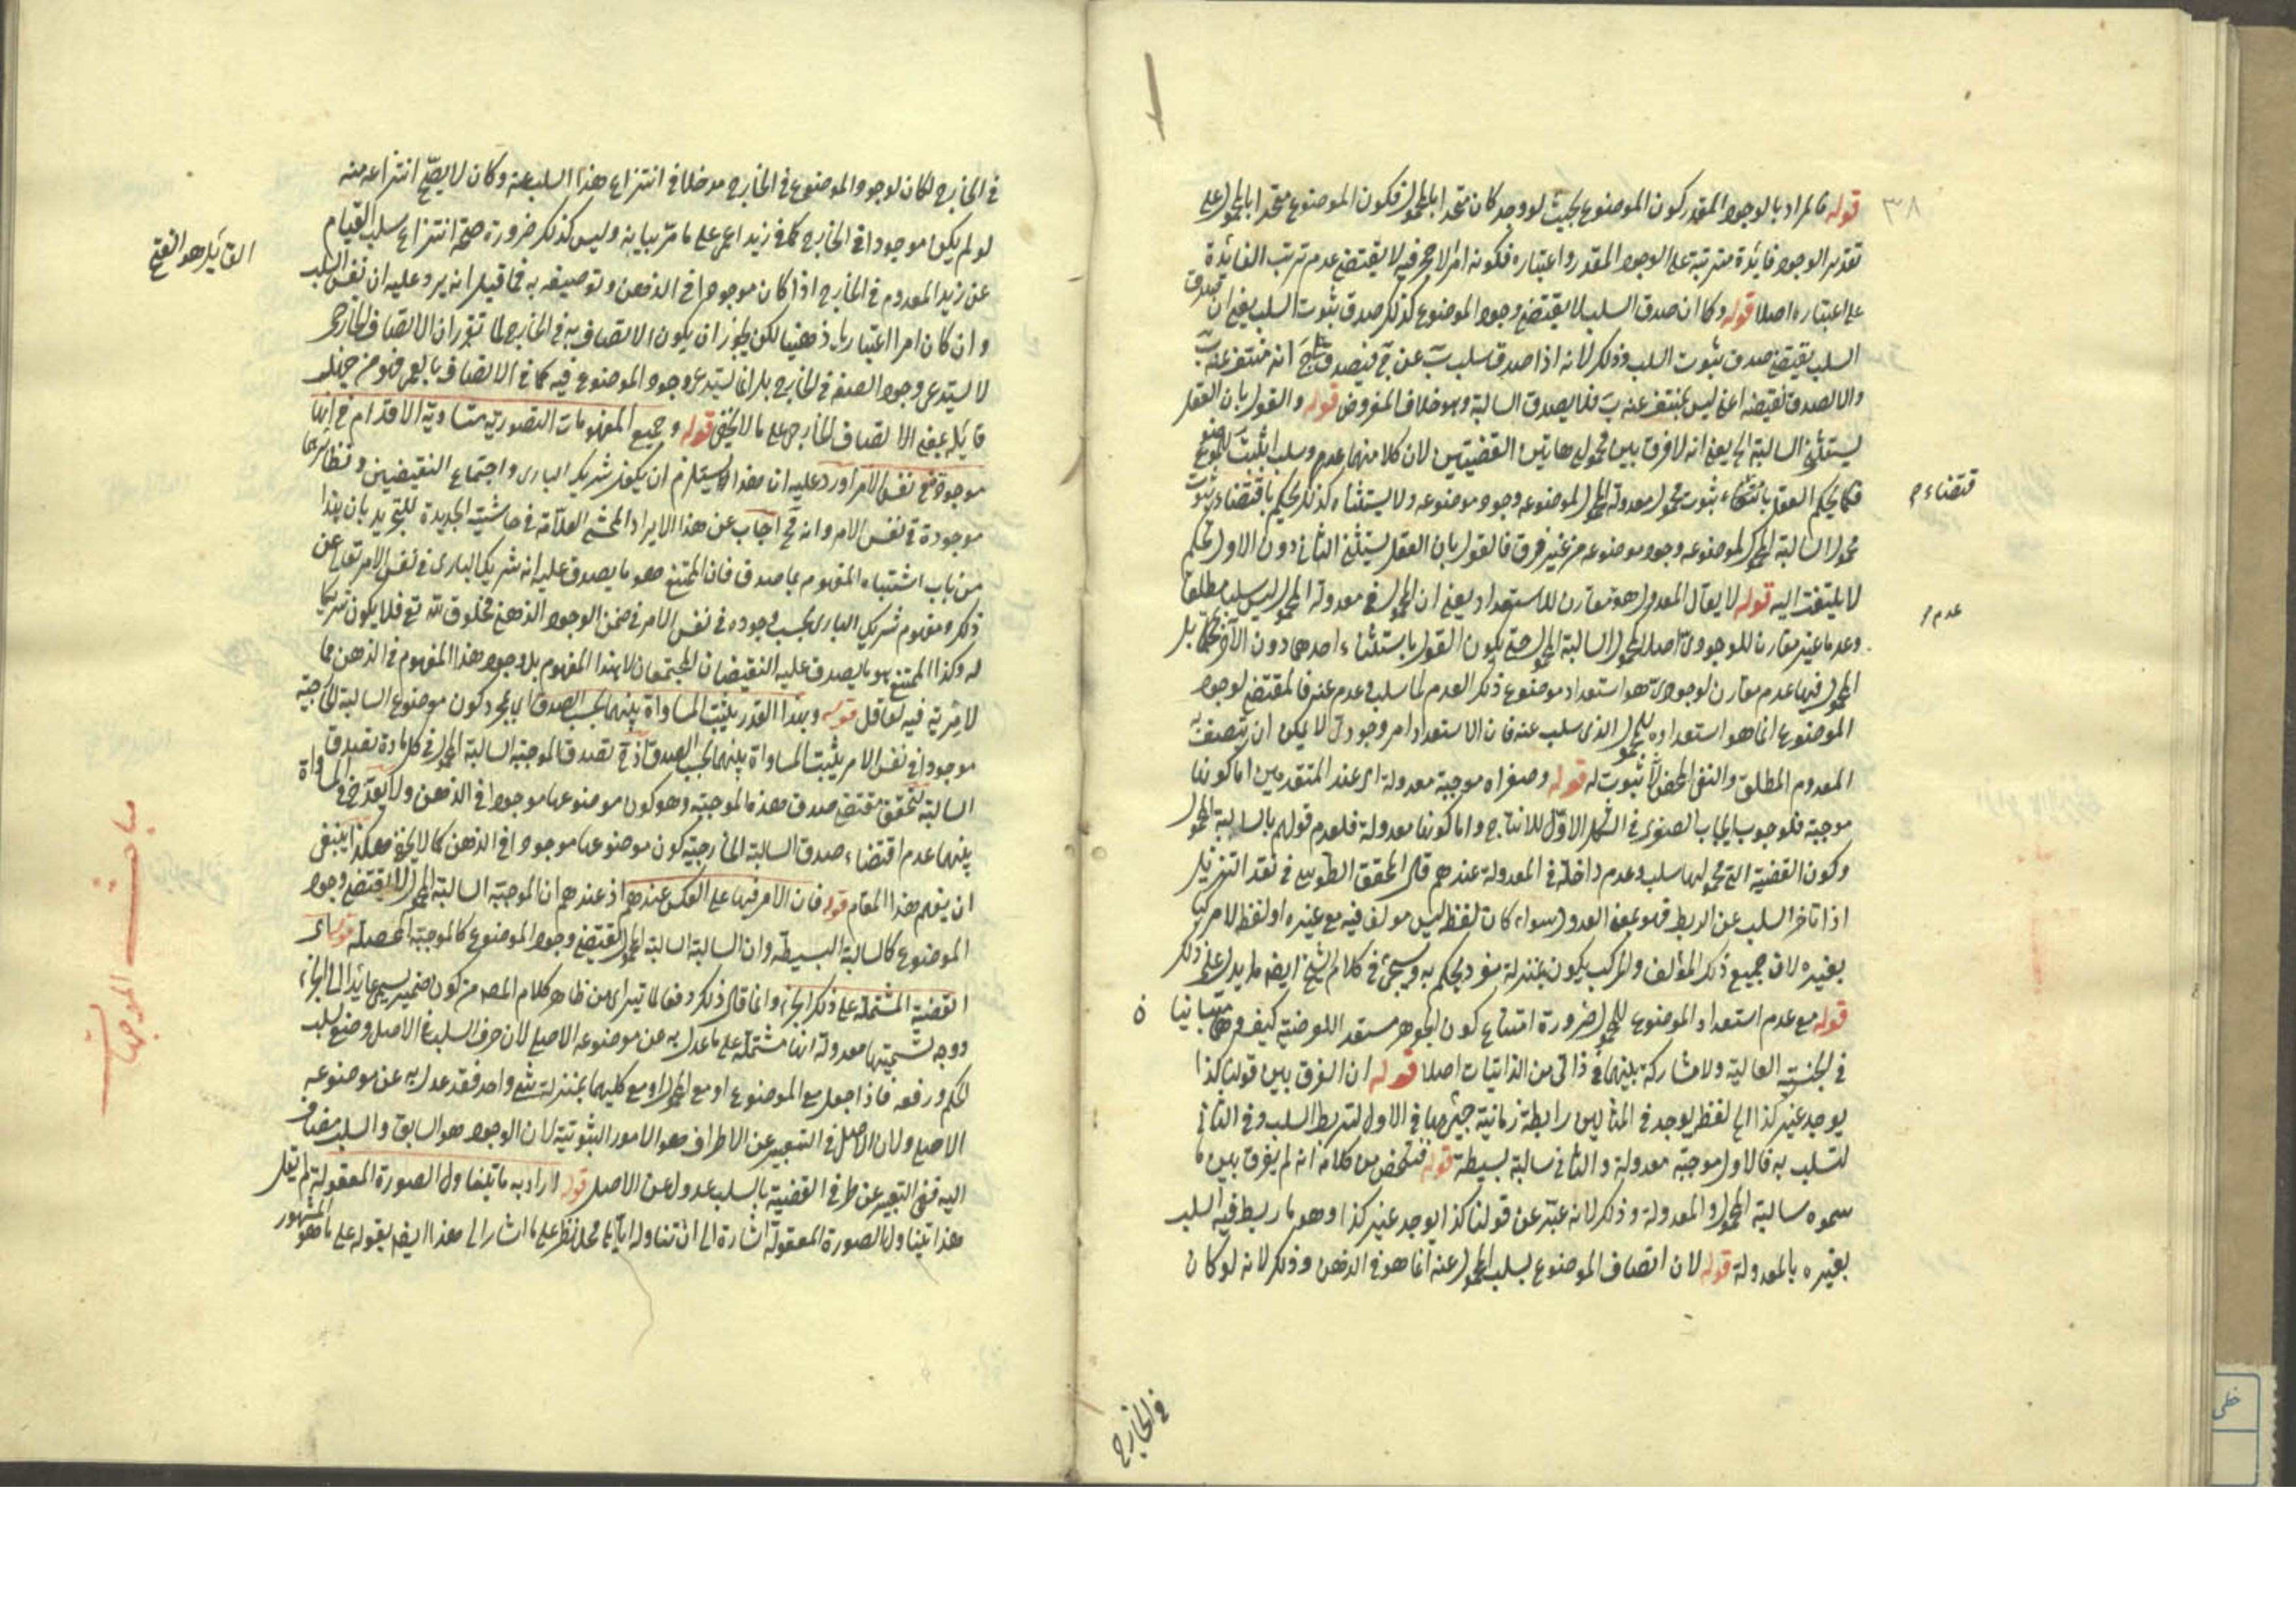 ٣٨
قوله فالمراد بالوجود المقدر كون الموضوع بحيث لو وجد كان متحدا بالمحمول فكون الموضوع متحدا بالمحمول على
تقدير الوجود فايدة مترتبة على الوجود المقدر واعتباره فكونه امرا لا حجر فيه لا يقتضي عدم ترتب الفائدة
على اعتباره اصلا قوله وكما ان صدق السلب لا يقتضي وجود الموضوع كذلك صدق ثبوت السلب يعني ان صدق
السلب يقتضي صدق ثبوت السلب وذلك لانه اذا صدق سلب ب عن ج فيصدق على ج انه منتف عنه ب
والا لصدق نقيضه اعني ليس بمنتف عنه ب فلا يصدق السالبة وهو خلاف المفروض قوله والقول بان العقل
يستثني السالبة الخ يعني انه لا فرق بين محمولي هاتين القضيتين لان كلا منهما عدم وسلب اثبت للموضوع
فكما يحكم العقل باقتضاء ثبوت محمول معدولة المحمول لموضوعه وجود موضوعه ولا يستثناه كذلك يحكم باقتضاء ثبوت
محمول السالبة المحمول لموضوعه وجود موضوعه من غير فرق فالقول بان العقل يستثني الثاني دون الاول تحكم
لا يلتفت اليه قوله لا يقال المعدول هو مقارن للاستعداد يعني ان المحمول في معدولة المحمول ليس سلبا مطلقا
وعدما غير مقارن للوجودي اصلا كمحمول السالبة المحمول حتى يكون القول باستثناء احدهما دون الآخر تحكما بل
المحمول فيها عدم مقارن لوجودي هو استعداد موضوع ذلك العدم لما سلب وعدم عنه فالمقتضي لوجود
الموضوع انما هو استعداده للمحمول الذي سلب عنه فان الاستعداد امر وجودي لا يمكن ان يتصف به
المعدوم المطلق والنفي المحض لا ثبوت له قوله وصغراه موجبة معدولة اي عند المتقدمين اما كونها
موجبة فلوجوب ايجاب الصغرى في الشكل الاول للانتاج واما كونها معدولة فلعدم قولهم بالسالبة المحمول
وكون القضية التي محمولها سلب وعدم داخلة في المعدولة عندهم قال المحقق الطوسي في نقد التنزيل
اذا تاخر السلب عن الربط فهو بمعنى العدول سواء كان لفظ ليس مولف فيه مع غيره او لفظ لا مركبا
بغيره لان جميع ذلك المؤلف والمركب يكون بمنزلة مفرد يحكم به وسيجئ في كلام الشيخ ايضا ما يدل على ذلك
قوله مع عدم استعداد الموضوع للمحمول ضرورة امتناع كون الجوهر مستعد اللوضية كيف وهما متباينان
في الجنسية العالية ولا مشاركة بينهما في ذاتي من الذاتيات اصلا قوله ان الفرق بين قولنا كذا
يوجد غير كذا الخ لفظ يوجد في المثالين رابطة زمانية جئ بها في الاول لتربط السلب وفي الثاني
لتسلب به فالاول موجبة معدولة والثاني سالبة بسيطة قوله فتلخص من كلامه انه لم يفرق بين ما
سموه سالبة المحمول والمعدولة وذلك لانه عبر عن قولنا كذا يوجد غير كذا وهو ما ربط فيه السلب
بغيره بالمعدولة قوله لان اتصاف الموضوع بسلب المحمول عنه انما هو في الذهن وذلك لانه لو كان
قتضاء م
عدم م
في الخارج
في الخارج لكان لوجود الموضوع في الخارج مدخلا في انتزاع هذا السلب عنه وكان لا يصح انتزاعه منه
لو لم يكن موجودا في الخارج كما في زيد اعمى على ما مر بيانه وليس كذلك ضرورة صحة انتزاع سلب القيام
عن زيد المعدوم في الخارج اذا كان موجودا في الذهن وتوصيفه به فما قيل انه يرد عليه ان نفس السلب
وان كان امرا اعتباريا ذهنيا لكن يجوز ان يكون الاتصاف به في الخارج لما تقرر ان الاتصاف الخارجي
لا يستدعي وجود الصفة في الخارج بل انما يستدعي وجود الموصوف فيه كما في الاتصاف بالعمى فهو من جهل
قايله بمعنى الاتصاف الخارجي على ما لا يخفى قوله وجميع المفهومات التصورية متساوية الاقدام في انها
موجودة في نفس الامر اورد عليه ان هذا يستلزم ان يكون شريك الباري واجتماع النقيضين ونظايرهما
موجودة في نفس الامر وانه مح اجاب عن هذا الايراد المحشي العلامة في حاشيته الجديدة للتجريد بان هذا
من باب اشتباه المفهوم بما صدق فان الممتنع هو ما يصدق عليه انه شريك الباري في نفس الامر تعالى عن
ذلك ومفهوم شريك الباري بحسب وجوده في نفس الامر في ضمن الوجود الذهني مخلوق لله تع فلا يكون شريكا
له وكذا الممتنع هو ما يصدق عليه النقيضان المجتمعان لا هذا المفهوم بل وجود هذا المفهوم في الذهن مما
لا مرية فيه لعاقل قوله وبهذا القدر يثبت المساواة بينهما بحسب الصدق اي بمجرد كون موضوع السالبة الخارجية
موجودا في نفس الامر يثبت المساواة بينهما بحسب الصدق اذ ح تصدق الموجبة السالبة المحمول في كل مادة تصدق
السالبة لتحقق مقتضى صدق هذه الموجبة وهو كون موضوعها موجودا في الذهن ولا يقدح في المساواة
بينهما عدم اقتضاء صدق السالبة الخارجية كون موضوعها موجودا في الذهن كما لا يخفى هكذا ينبغي
ان يفهم هذا المقام قوله فان الامر فيها على العكس عندهم اذ عندهم ان الموجبة السالبة المحمول لا يقتضي وجود
الموضوع كالسالبة البسيطة وان السالبة السالبة المحمول يقتضي وجود الموضوع كالموجبة المحصلة قوله اى
القضية المشتملة على ذلك الجزء وانما قال ذلك دفعا لما يتراى من ظاهر كلام المص من كون ضمير يسمى عايدا الى الجزء
ووجه تسميتها معدولة انها مشتملة على ما عدل به عن موضوعه الاصلي لان حرف السلب في الاصل وضع لسلب
الحكم ورفعه فاذا جعل مع الموضوع او مع المحمول او مع كليهما بمنزلة شئ واحد فقد عدل به عن موضوعه
الاصلي ولان الاصل في التعبير عن الاطراف هو الامور الثبوتية لان الوجود هو السابق والسلب مضاف
اليه ففي التعبير عن طرفي القضية بالسلب عدول عن الاصل قوله اراد به ما يتناول الصورة المعقولة لم يقل
هذا يتناول الصورة المعقولة اشارة الى ان تناوله اياها محل نظر على ما اشار الى هذا ايضا بقوله على ما هو المشهور
القايل هو الفتح
مباحث الموجهات